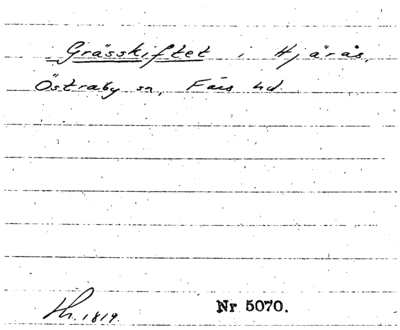 Grässkiftet i Hjärås,
Östraby sn, Färs hd.
Th. 1819.
Nr 5070.